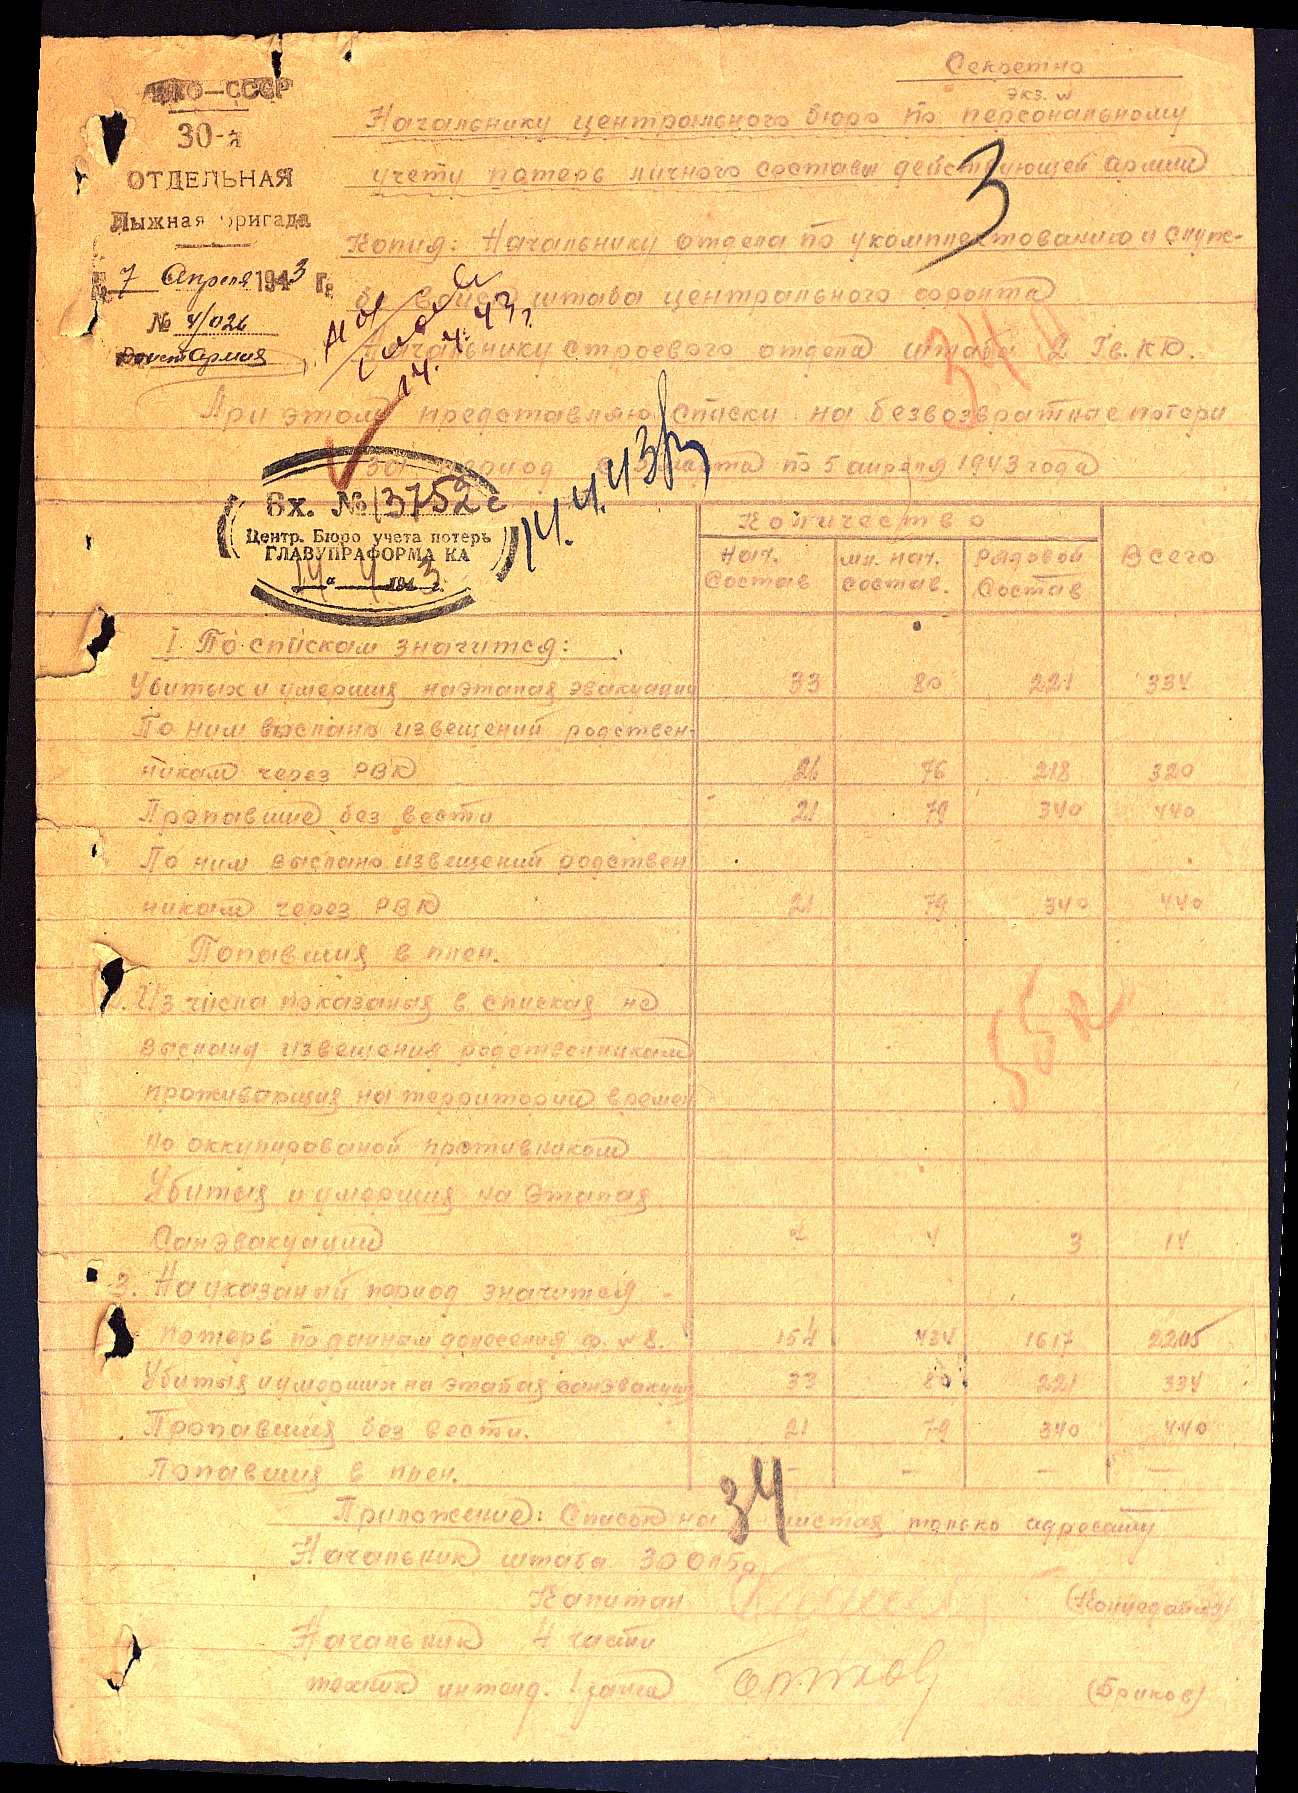 Секретно
экз. №
НКО—СССР
30-я
ОТДЕЛЬНАЯ
Лыжная бригада
7 Апреля 1943 г.
№ 4/026
Начальнику центрального бюро по персональному
учету потерь личного состава действующей армии
3
Копия: Начальнику отдела по укомплектованию и служ-
бе войск штаба центрального фронта
Начальнику строевого отдела штаба 2 Гв. КД.
14. 4. 43 г.
При этом представляю списки на безвозвратные потери
за период с 5 марта по 5 апреля 1943 года
Вх. № 13752с
Центр. Бюро учета потерь
ГЛАВУПРАФОРМА КА
14 4 1943 г.
14.4.43
Количество
Нач. Состав
мл. нач. состав.
рядовой состав
Всего
1 По спискам значится:
Убитых и умерших на этапах эвакуации 33 80 221 334
По ним выслано извещений родствен-
никам через РВК 26 76 218 320
Пропавшие без вести 21 79 340 440
По ним выслано извещений родствен
никам через РВК 21 79 340 440
Попавших в плен.
2. Из числа показаных в списках не
высланы извещения родственникам
проживающих на территории времен
но оккупированой противником
Убитых и умерших на этапах
Санэвакуации 7 4 3 14
3. На указаный период значится
потерь по данным донесения ф. № 8. 154 434 1617 2205
Убитых и умерших на этапах санэвакуац 33 80 221 334
Пропавших без вести. 21 79 340 440
Попавших в плен. — — — —
Приложение: Список на 34 листах только адресату
Начальник штаба 30 олбр
Капитан
Начальник 4 части
техник интенд. 1 ранга Бриков (Бриков)